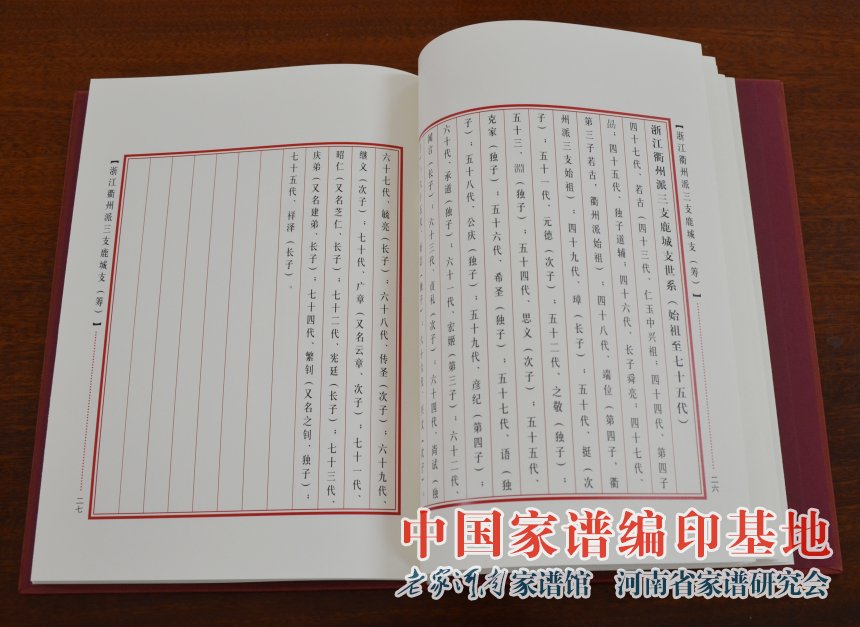 【浙江衢州派三支鹿城支（筹）】
浙江衢州派三支鹿城支世系（始祖至七十五代）
四十七代、若古（四十三代、仁玉中兴祖；四十四代、第四子
勖；四十五代、独子道辅；四十六代、长子舜亮；四十七代、
第三子若古，衢州派始祖）；四十八代、端位（第四子，衢
州派三支始祖）；四十九代、璋（长子）；五十代、挺（次
子）；五十一代、元德（次子）；五十二代、之敬（独子）；
五十三、淵（独子）；五十四代、思义（次子）；五十五代、
克家（独子）；五十六代、希圣（独子）；五十七代、语（独
子）；五十八代、公庆（独子）；五十九代、彦纪（第四子）；
六十代、承道（独子）；六十一代、宏姬（第三子）；六十二代、
闻言（长子）；六十三代、贞札（次子）；六十四代、尚试（独
二六
六十七代、毓亮（长子）；六十八代、传圣（次子）；六十九代、
继义（次子）；七十代、广章（又名云章、次子）；七十一代、
昭仁（又名芝仁、长子）；七十二代、宪廷（长子）；七十三代、
庆弟（又名建弟、长子）；七十四代、繁钊（又名之钊，独子）；
七十五代、祥泽（长子）。
【浙江衢州派三支鹿城支（筹）】
二七
中国家谱编印基地
老家河南家谱馆 河南省家谱研究会